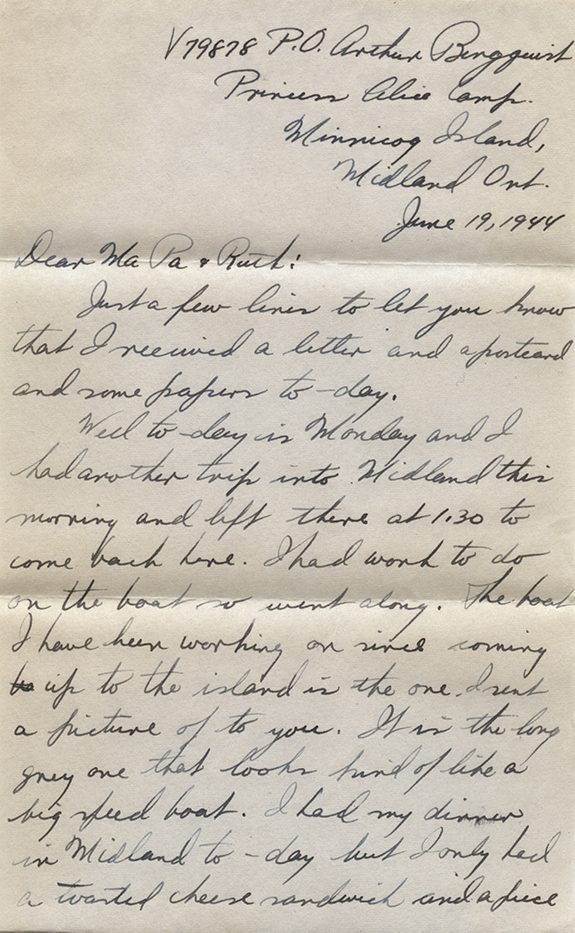 V79878 P.O. Arthur Bergquist
Princess Alice Camp.
Minnicog Island,
Midland Ont.
June 19, 1944
Dear Ma Pa & Ruth:
Just a few lines to let you know
that I received a letter and a postcard
and some papers to-day.
Well to-day is Monday and I
had another trip into Midland this
morning and left there at 1.30 to
come back here. I had work to do
on the boat so went along. The boat
I have been working on since coming
up to the island is the one I sent
a picture of to you. It is the long
grey one that looks kind of like a
big speed boat. I had my dinner
in Midland to-day but I only had
a toasted cheese sandwich and a piece